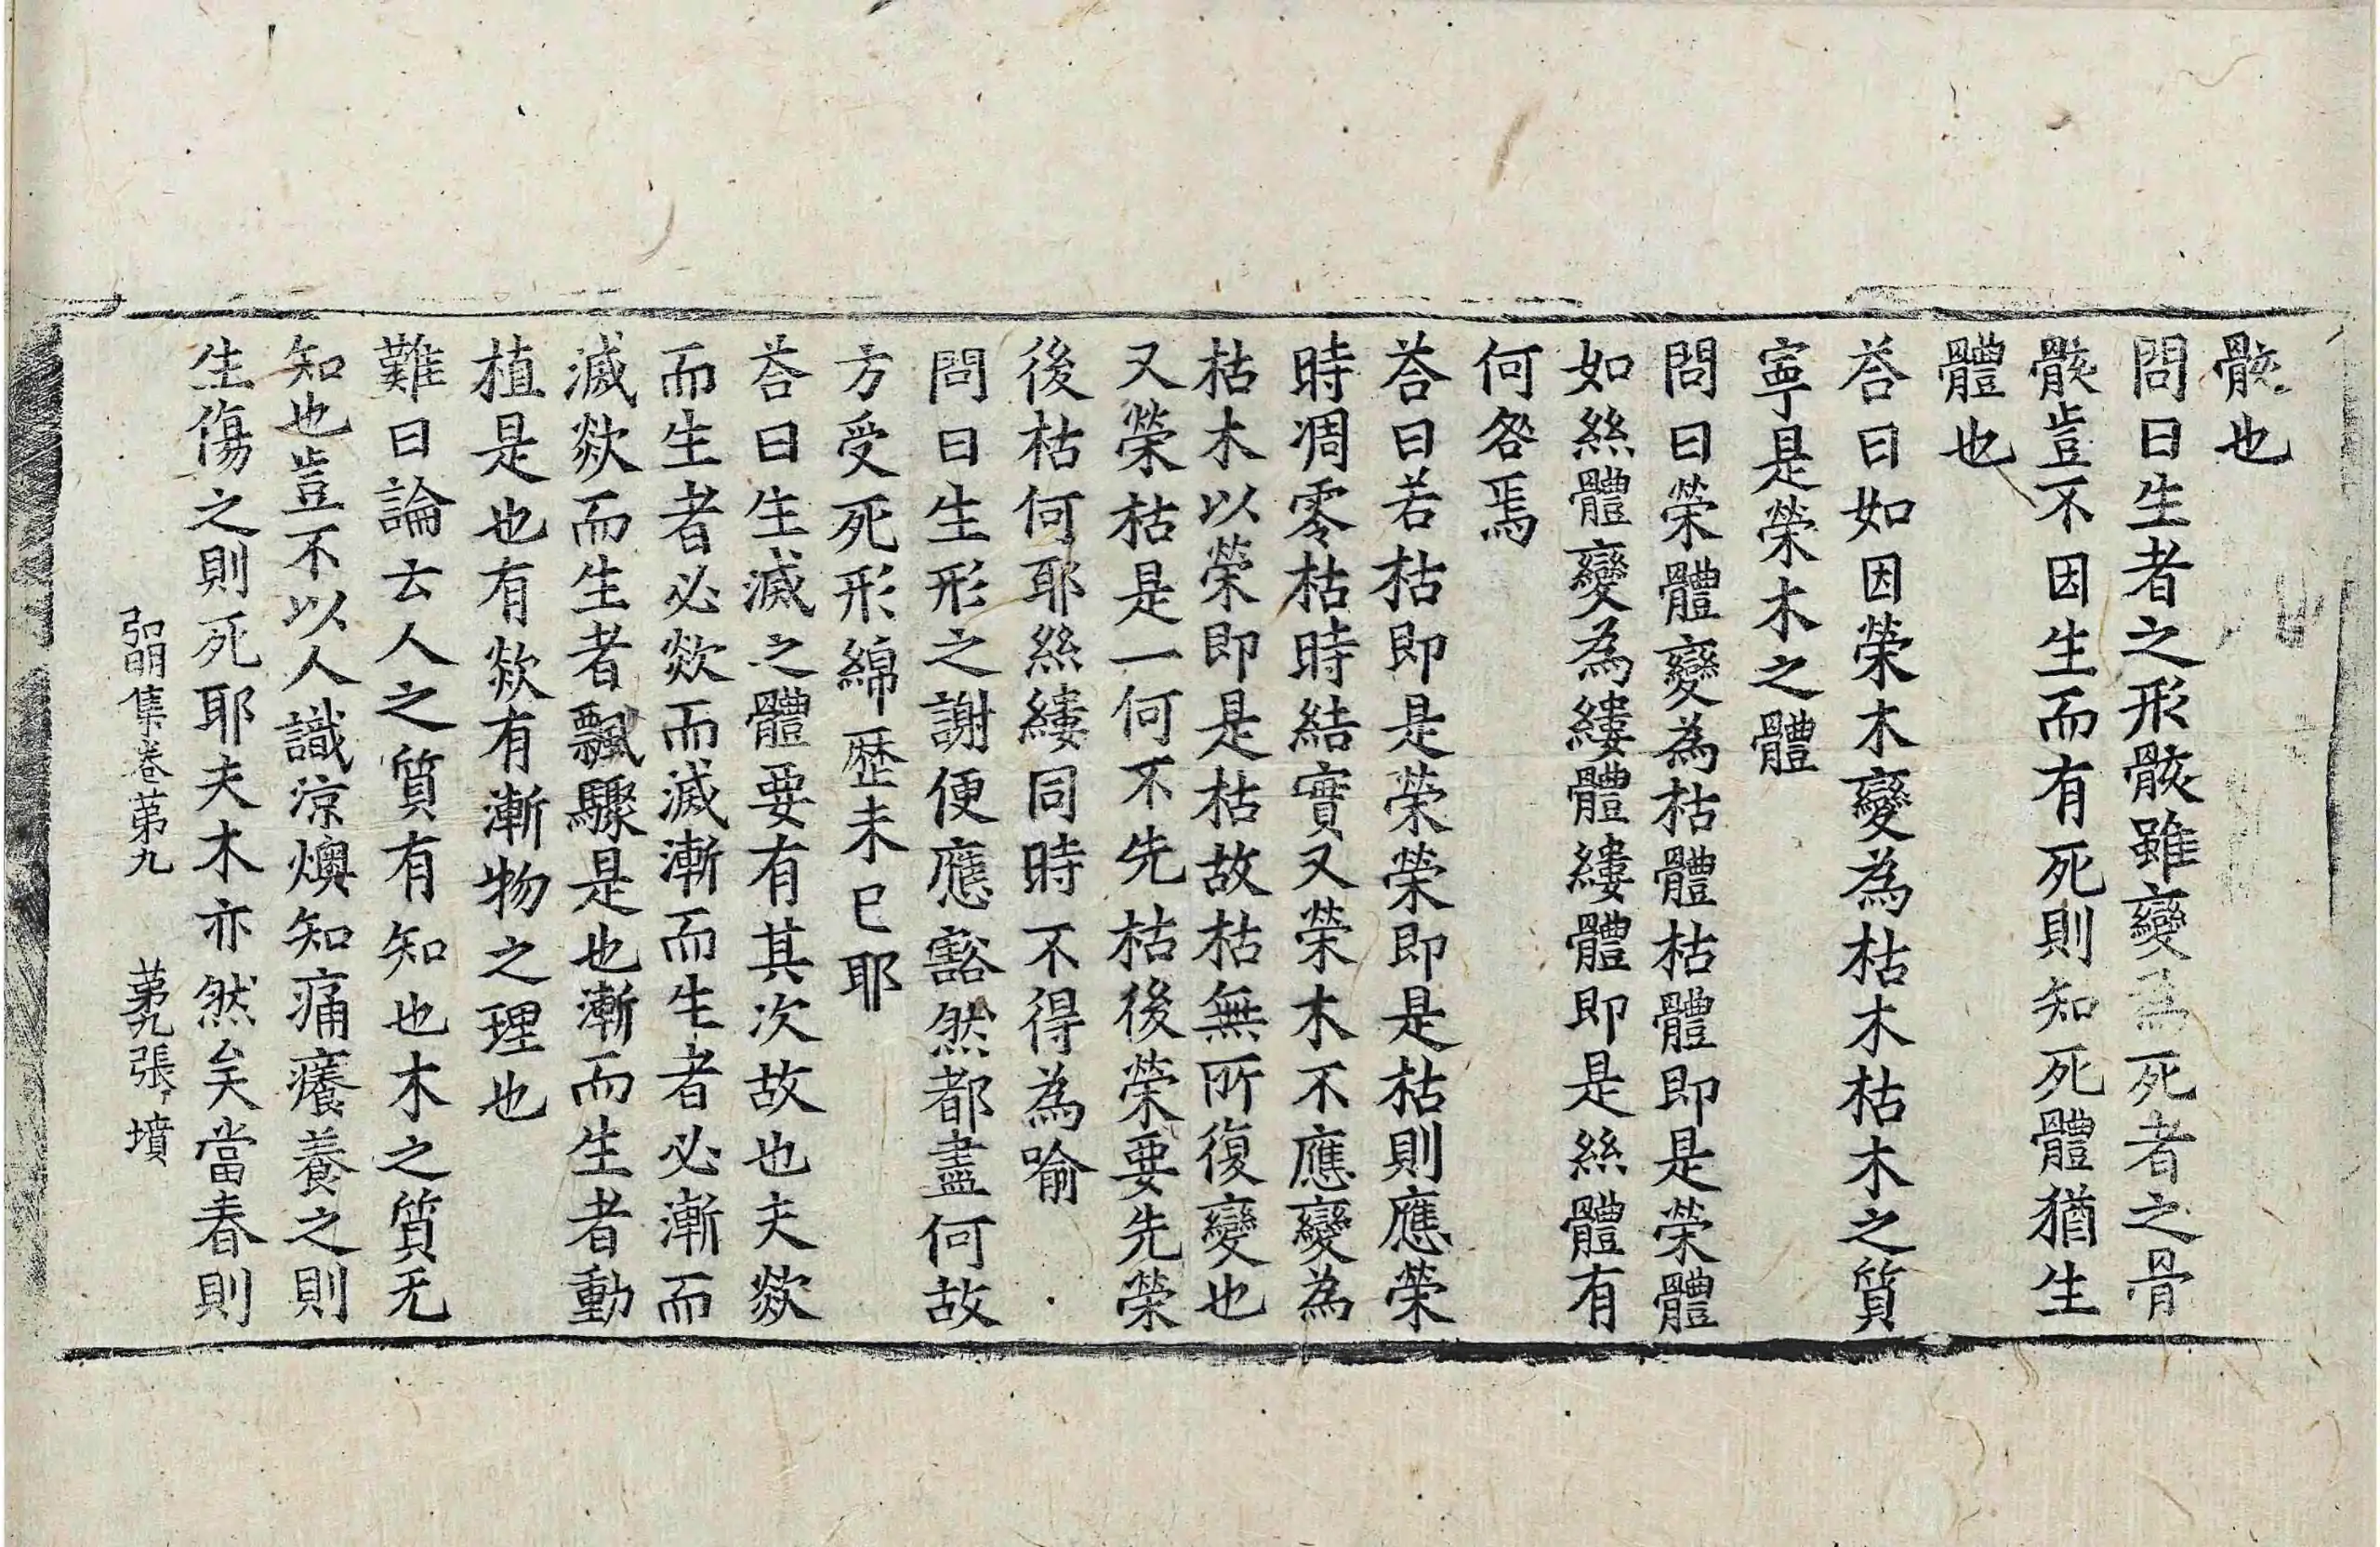 骸也
問曰生者之形骸雖變爲死者之骨
骸豈不因生而有死則知死體猶生
體也
荅曰如因荣木變為枯木枯木之質
寧是榮木之體
問曰荣體變為枯體枯體即是荣體
如絲體變為縷體縷體即是絲體有
何咎焉
荅曰若枯即是荣荣即是枯則應荣
時凋零枯時結實又荣木不應變為
枯木以荣即是枯故枯無所復變也
又榮枯是一何不先枯後榮要先榮
後枯何耶絲縷同時不得為喻
問曰生形之謝便應豁然都盡何故
方受死形綿歷未已耶
荅曰生滅之體要有其次故也夫欻
而生者必欻而滅漸而生者必漸而
滅欻而生者飄驟是也漸而生者動
植是也有欻有漸物之理也
難曰論云人之質有知也木之質无
知也豈不以人識涼燠知痛癢養之則
生傷之則死耶夫木亦然矣當春則
弘明集卷苐九 苐九張 墳